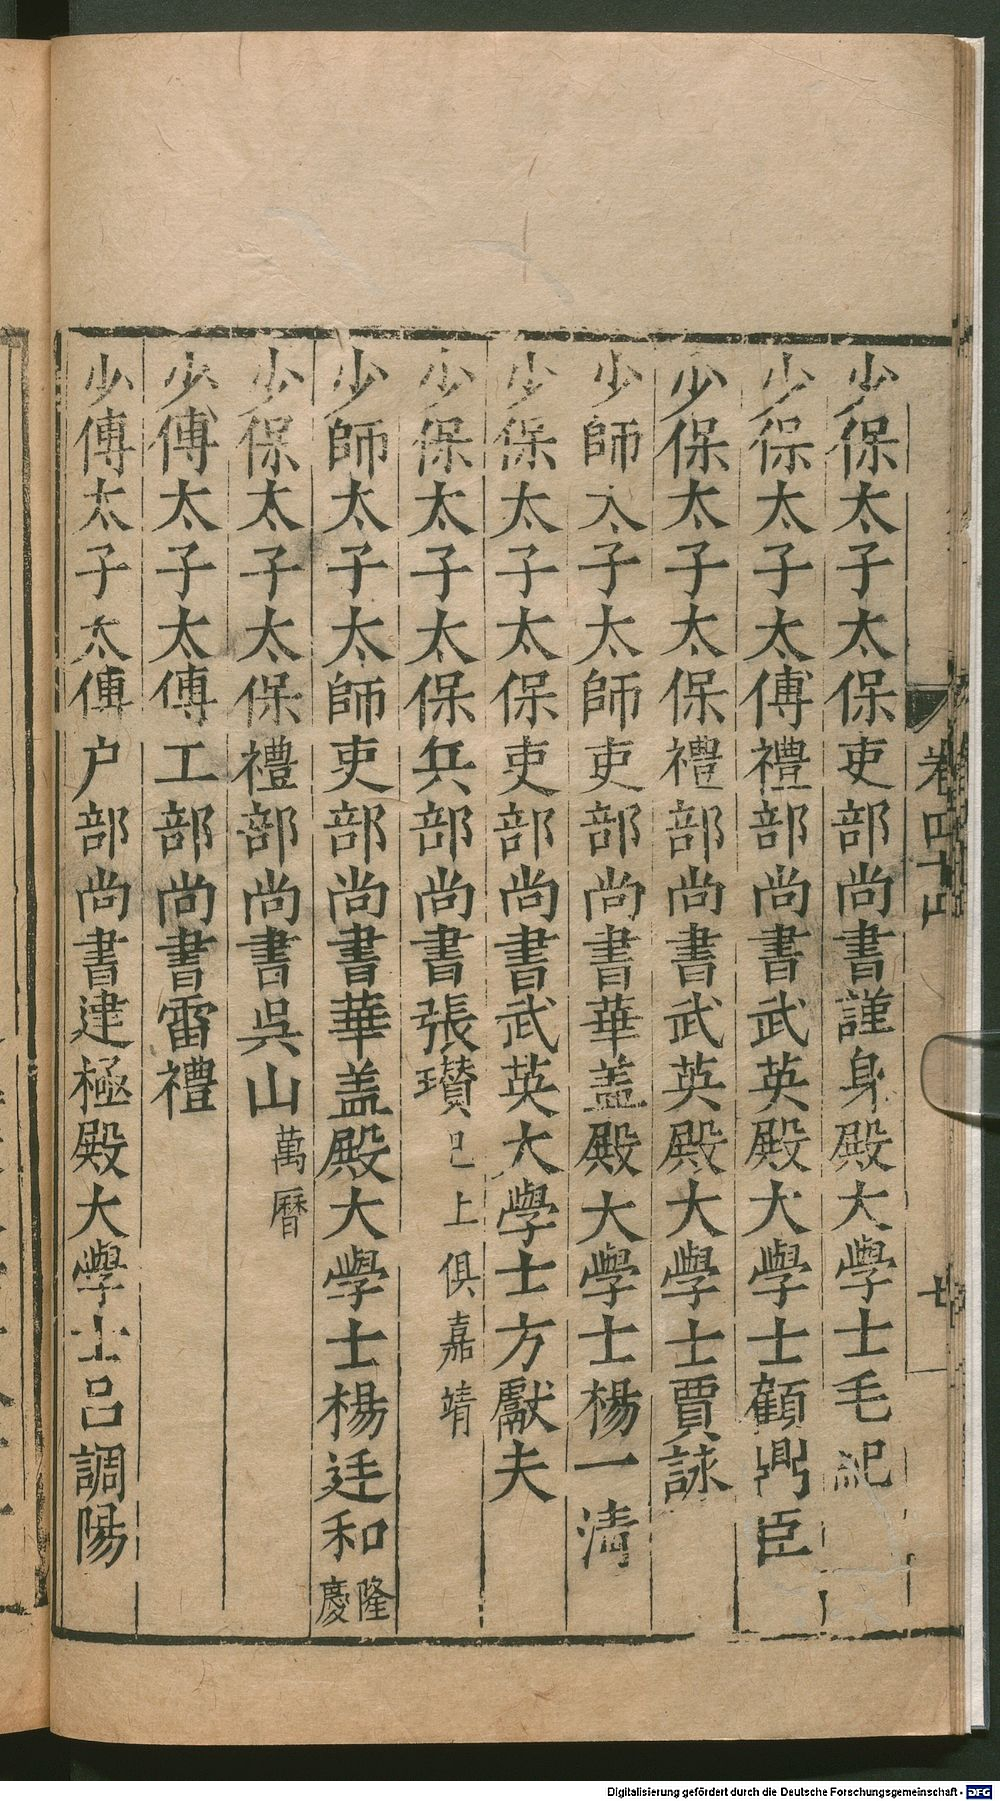 少保太子太保吏部尚書謹身殿大學士毛紀
少保太子太傅禮部尚書武英殿大學士顧鼎臣
少保太子太保禮部尚書武英殿大學士賈詠
少師太子太師吏部尚書華蓋殿大學士楊一清
少保太子太保吏部尚書武英大學士方獻夫
少保太子太保兵部尚書張瓚已上俱嘉靖
少師太子太師吏部尚書華盖殿大學士楊廷和隆慶
少保太子太保禮部尚書吳山萬曆
少傅太子太傅工部尚書雷禮
少傅太子太傅户部尚書建極殿大學士呂調陽
卷四十
七
Digitalisierung gefördert durch die Deutsche Forschungsgemeinschaft - DFG